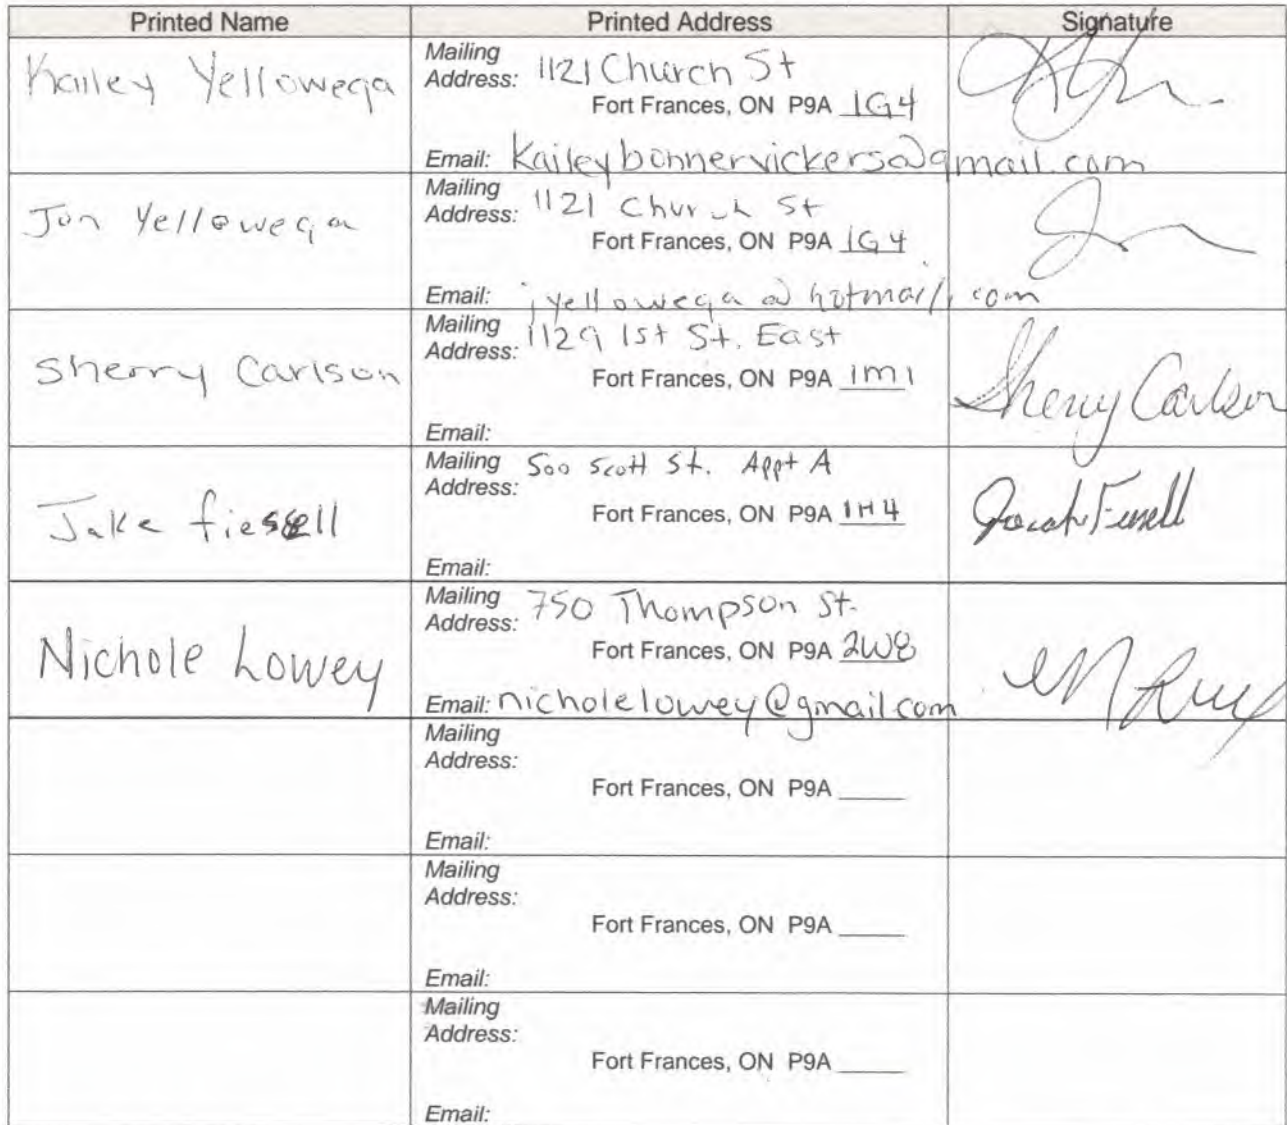 Printed Name Printed Address Signature
Kailey Yellowega
Mailing Address: 1121 Church St
Fort Frances, ON P9A 1G4
Email: Kaileybonnervickers@gmail.com
Jon Yellowega
Mailing Address: 1121 Church St
Fort Frances, ON P9A 1G4
Email: jyellowega@hotmail.com
Sherry Carlson
Mailing Address: 1129 1st St. East
Fort Frances, ON P9A 1M1
Sherry Carlson
Email:
Jake fiesell
Mailing Address: 500 Scott St. Appt A
Fort Frances, ON P9A 1H4
Email:
Nichole Lowey
Mailing Address: 750 Thompson St.
Fort Frances, ON P9A 2W8
Email: nicholelowey@gmail.com
Mailing Address:
Fort Frances, ON P9A
Email:
Mailing Address:
Fort Frances, ON P9A
Email:
Mailing Address:
Fort Frances, ON P9A
Email: